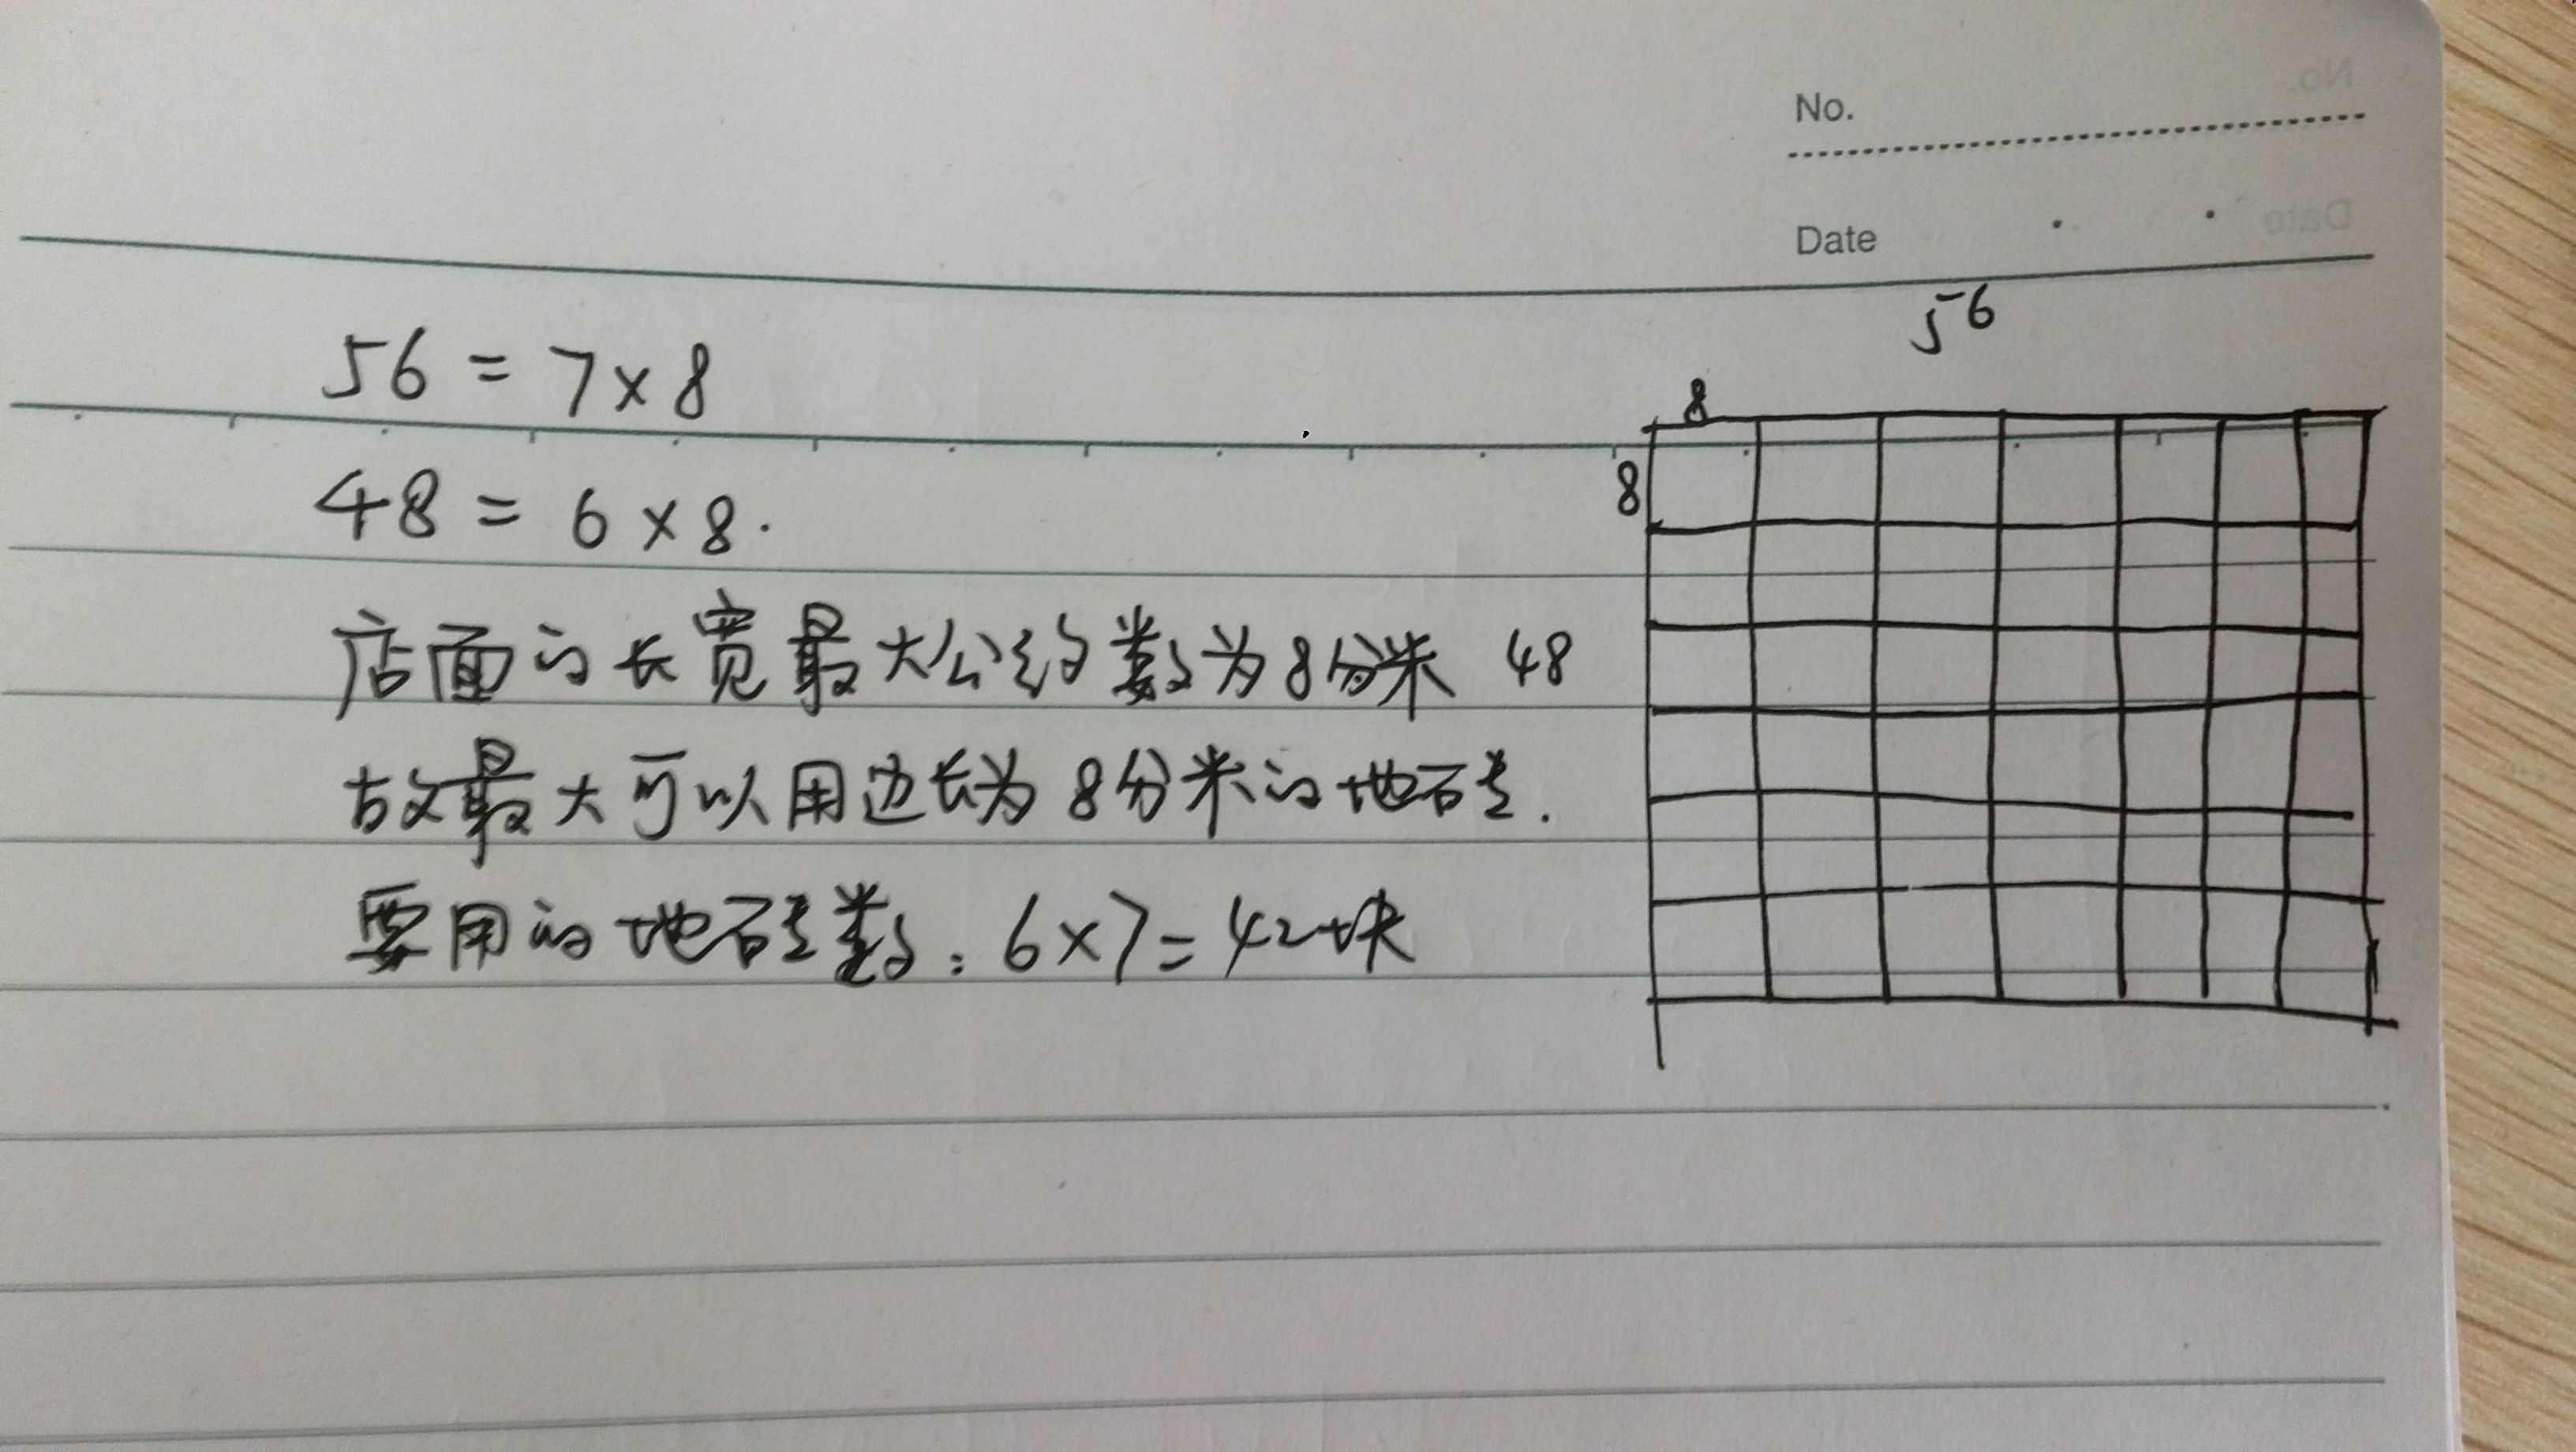 No.
Date
56
56 = 7×8
8
48 = 6×8.
8
店面的长宽最大公约数为8分米 48
故最大可以用边长为8分米的地砖.
要用的地砖数:6×7=42块